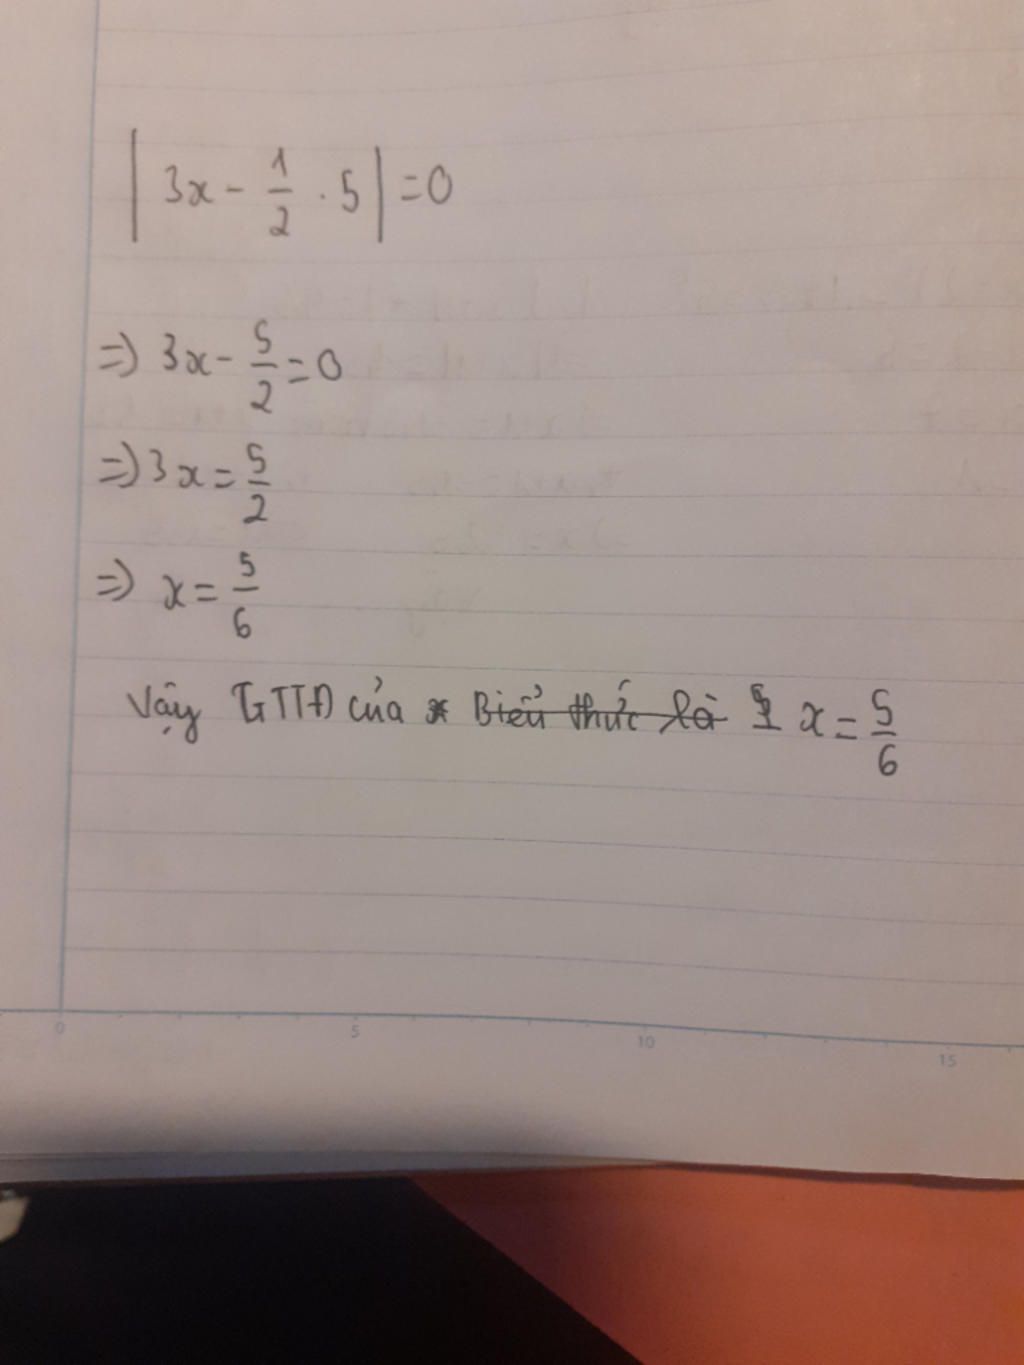 |3x - 1/2 . 5| = 0
=> 3x - 5/2 = 0
=> 3x = 5/2
=> x = 5/6
Vậy GTTĐ của x Biểu thức là x = 5/6
0 5 10 15